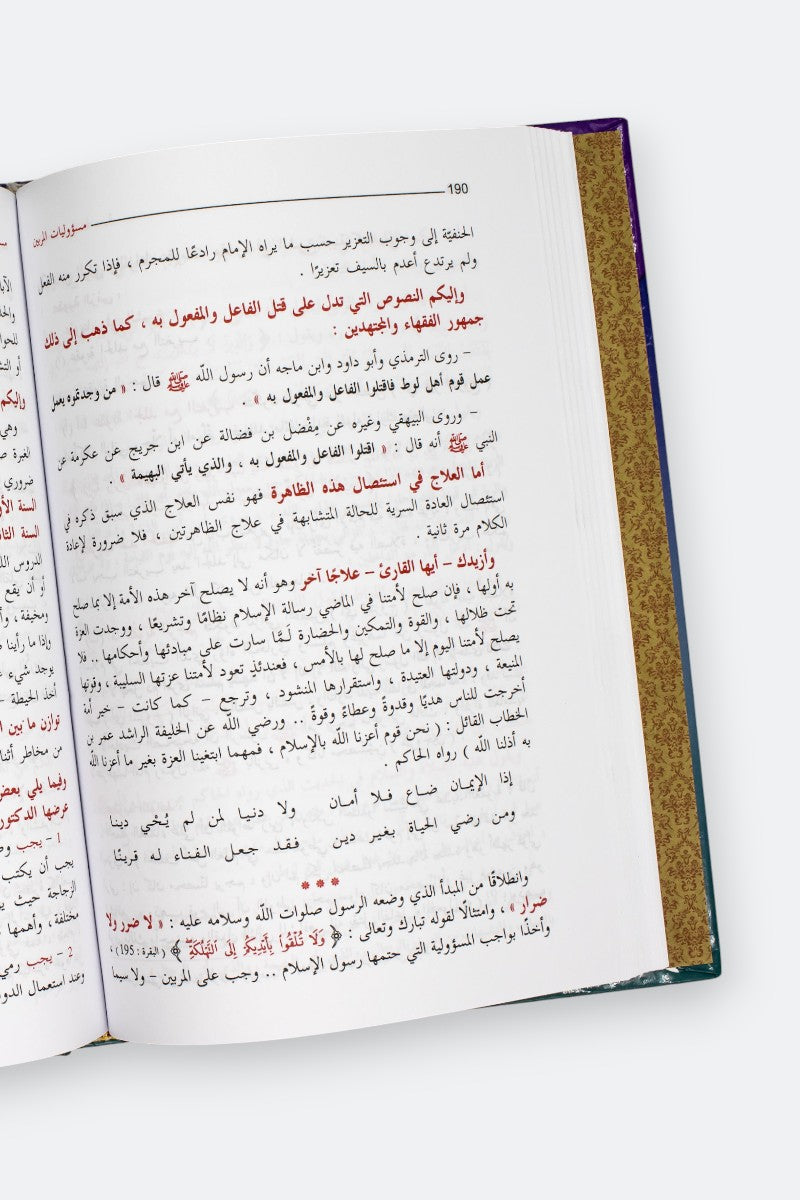 190
مسؤوليات المربين
الحنفيّة إلى وجوب التعزير حسب ما يراه الإمام رادعًا للمجرم ، فإذا تكرر منه الفعل
ولم يرتدع أعدم بالسيف تعزيرًا .
وإليكم النصوص التي تدل على قتل الفاعل والمفعول به ، كما ذهب إلى ذلك
جمهور الفقهاء والمجتهدين :
– روى الترمذي وأبو داود وابن ماجه أن رسول الله ﷺ قال : « من وجدتموه يعمل
عمل قوم أهل لوط فاقتلوا الفاعل والمفعول به » .
– وروى البيهقي وغيره عن مِفْضل بن فضالة عن ابن جريج عن عكرمة عن
النبي ﷺ أنه قال : « اقتلوا الفاعل والمفعول به ، والذي يأتي البهيمة » .
أما العلاج في استئصال هذه الظاهرة فهو نفس العلاج الذي سبق ذكره في
استئصال العادة السرية للحالة المتشابهة في علاج الظاهرتين ، فلا ضرورة لإعادة
الكلام مرة ثانية .
وأزيدك – أيها القارئ – علاجًا آخر وهو أنه لا يصلح آخر هذه الأمة إلا بما صلح
به أولها ، فإن صلح لأمتنا في الماضي رسالة الإسلام نظامًا وتشريعًا ، ووجدت العزة
تحت ظلالها ، والقوة والتمكين والحضارة لَـمَّا سارت على مبادئها وأحكامها .. فلا
يصلح لأمتنا اليوم إلا ما صلح لها بالأمس ، فعندئذٍ تعود لأمتنا عزتها السليبة ، وقوتها
المنيعة ، ودولتها العتيدة ، واستقرارها المنشود ، وترجع – كما كانت – خير أمة
أخرجت للناس هديًا وقدوةً وعطاءً وقوةً .. ورضي الله عن الخليفة الراشد عمر بن
الخطاب القائل : ( نحن قوم أعزنا الله بالإسلام ، فمهما ابتغينا العزة بغير ما أعزنا الله
به أذلنا الله ) رواه الحاكم .
إذا الإيمان ضاع فلا أمان ولا دنيا لمن لم يُحْي دينا
ومن رضي الحياة بغير دين فقد جعل الفناء له قرينًا
* * *
وانطلاقًا من المبدأ الذي وضعه الرسول صلوات الله وسلامه عليه : « لا ضرر ولا
ضرار » ، وامتثالًا لقوله تبارك وتعالى : ﴿ وَلَا تُلْقُوا بِأَيْدِيكُمْ إِلَى التَّهْلُكَةِ ﴾ ( البقرة : 195 ) ،
وأخذًا بواجب المسؤولية التي حتمها رسول الإسلام .. وجب على المربين – ولا سيما
وإليكم
وهي
ضروري
السنة الأو
الدروس
أو أن يقع
ومخيفة ، وأ
وإذا ما رأينا
يوجد شيء
أخذ الحيطة –
توازن ما بين
من مخاطر أثنا
وفيما يلي بعض
عرضها الدكتور
1 – يجب
يجب أن يكتب
الزجاجة حيث
مختلفة ، وأهمها
2 – يجب رمي
وعند استعمال